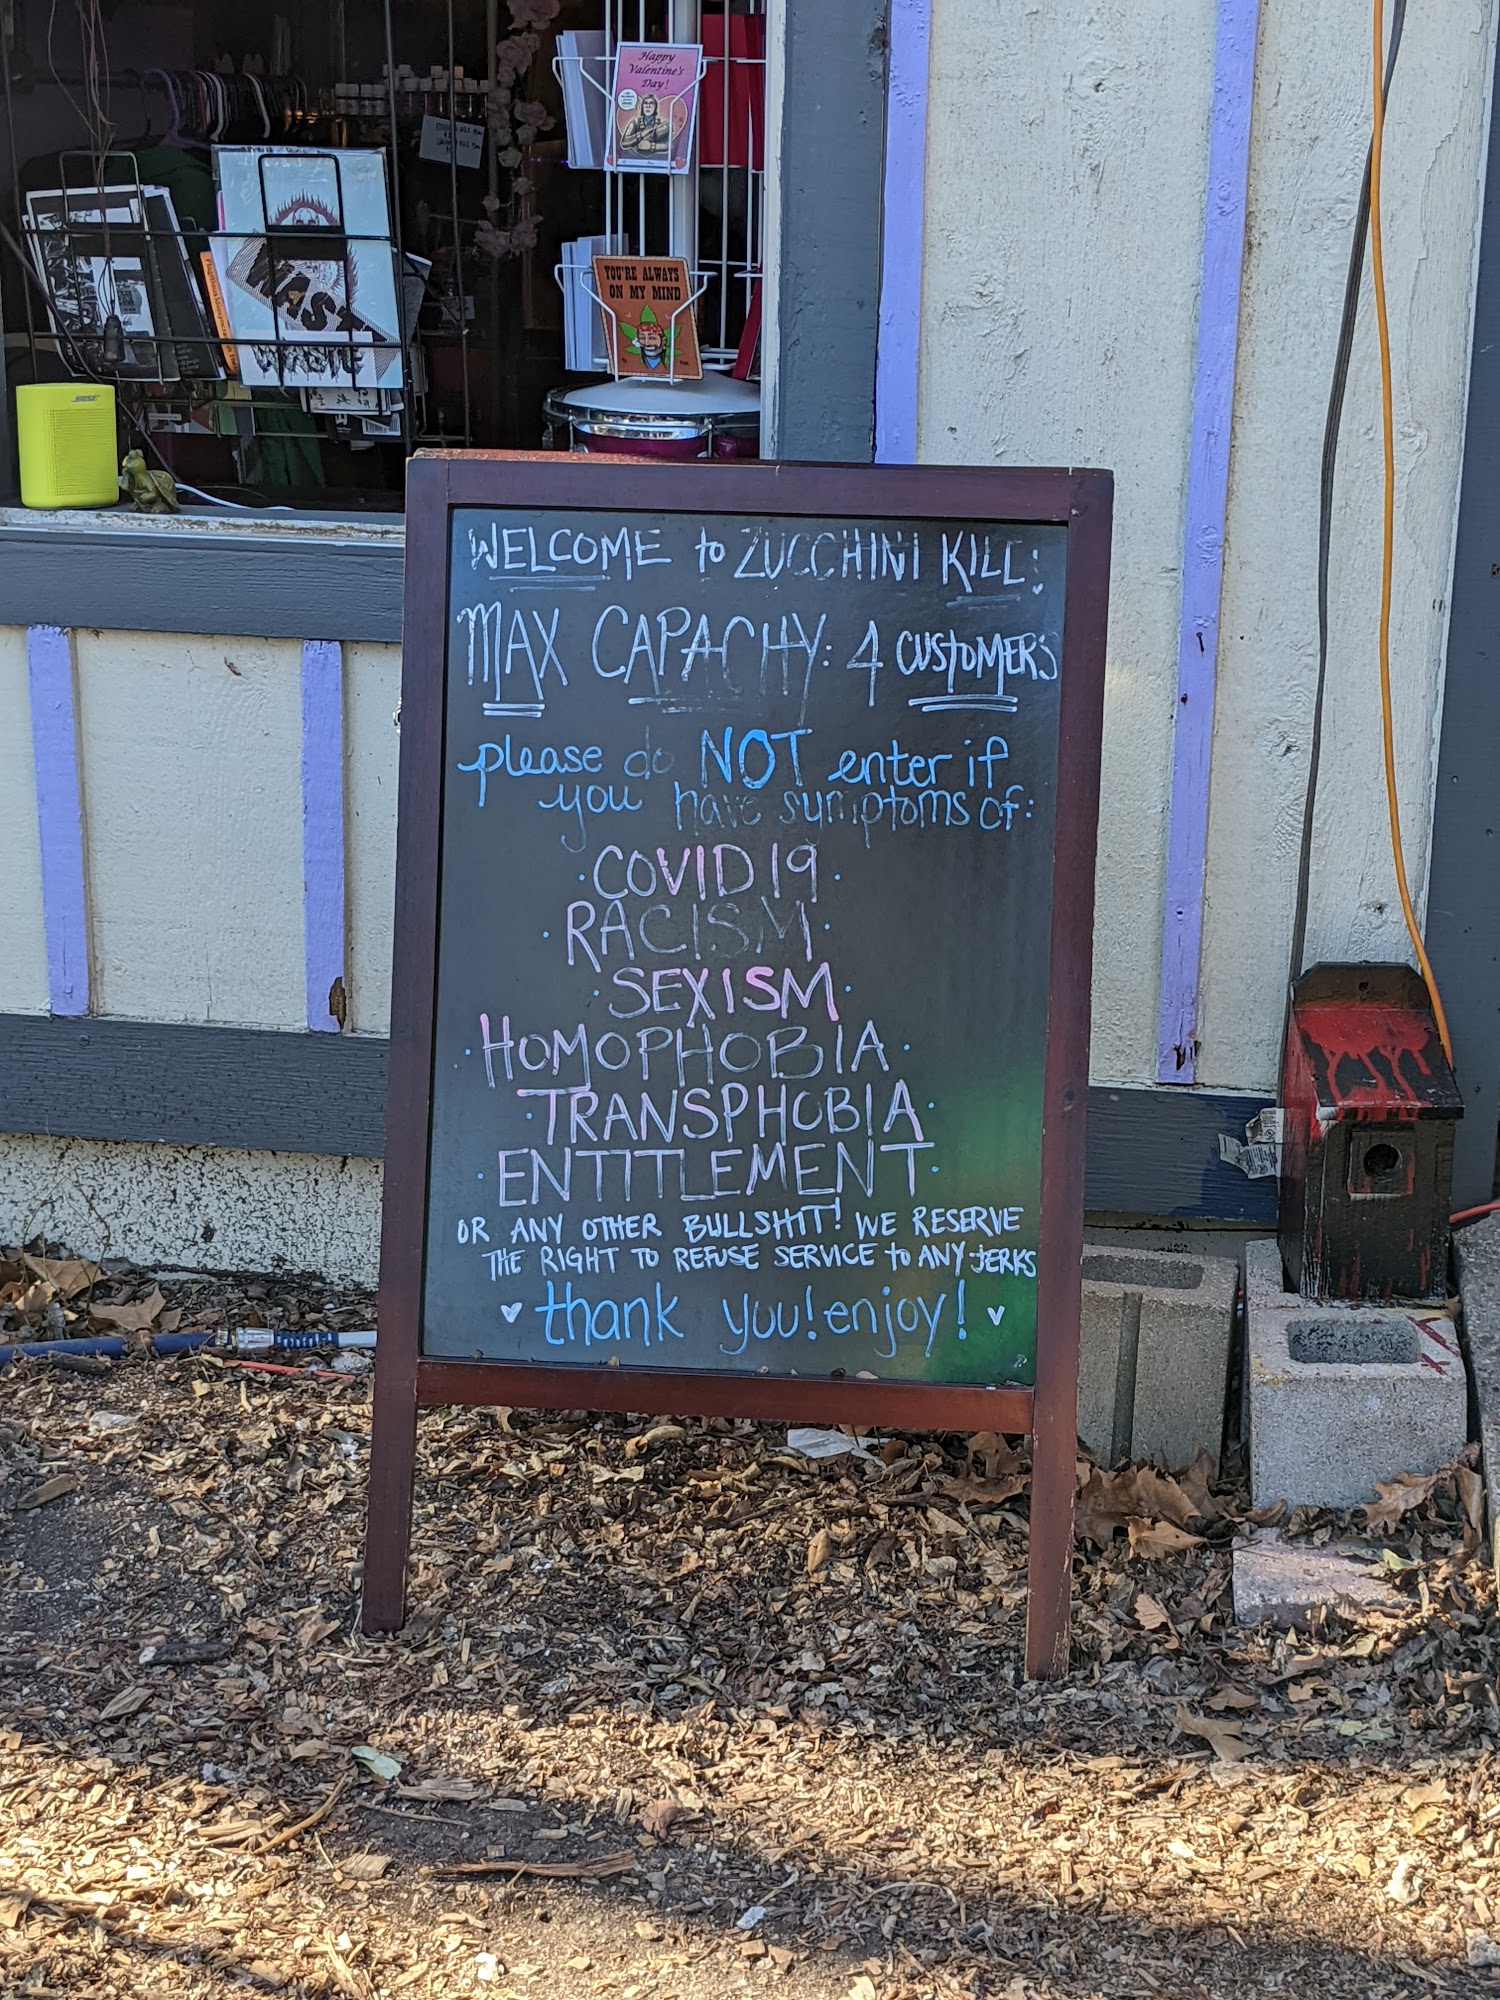 Happy
Valentine's
Day!
YOU'RE ALWAYS
ON MY MIND
BOSE
WELCOME to ZUCCHINI KILL:
MAX CAPACITY: 4 CUSTOMERS
please do NOT enter if
you have symptoms of:
· COVID 19 ·
· RACISM ·
· SEXISM ·
· HOMOPHOBIA ·
· TRANSPHOBIA ·
· ENTITLEMENT ·
OR ANY OTHER BULLSHIT! WE RESERVE
THE RIGHT TO REFUSE SERVICE to ANY JERKS
♥ thank you! enjoy! ♥